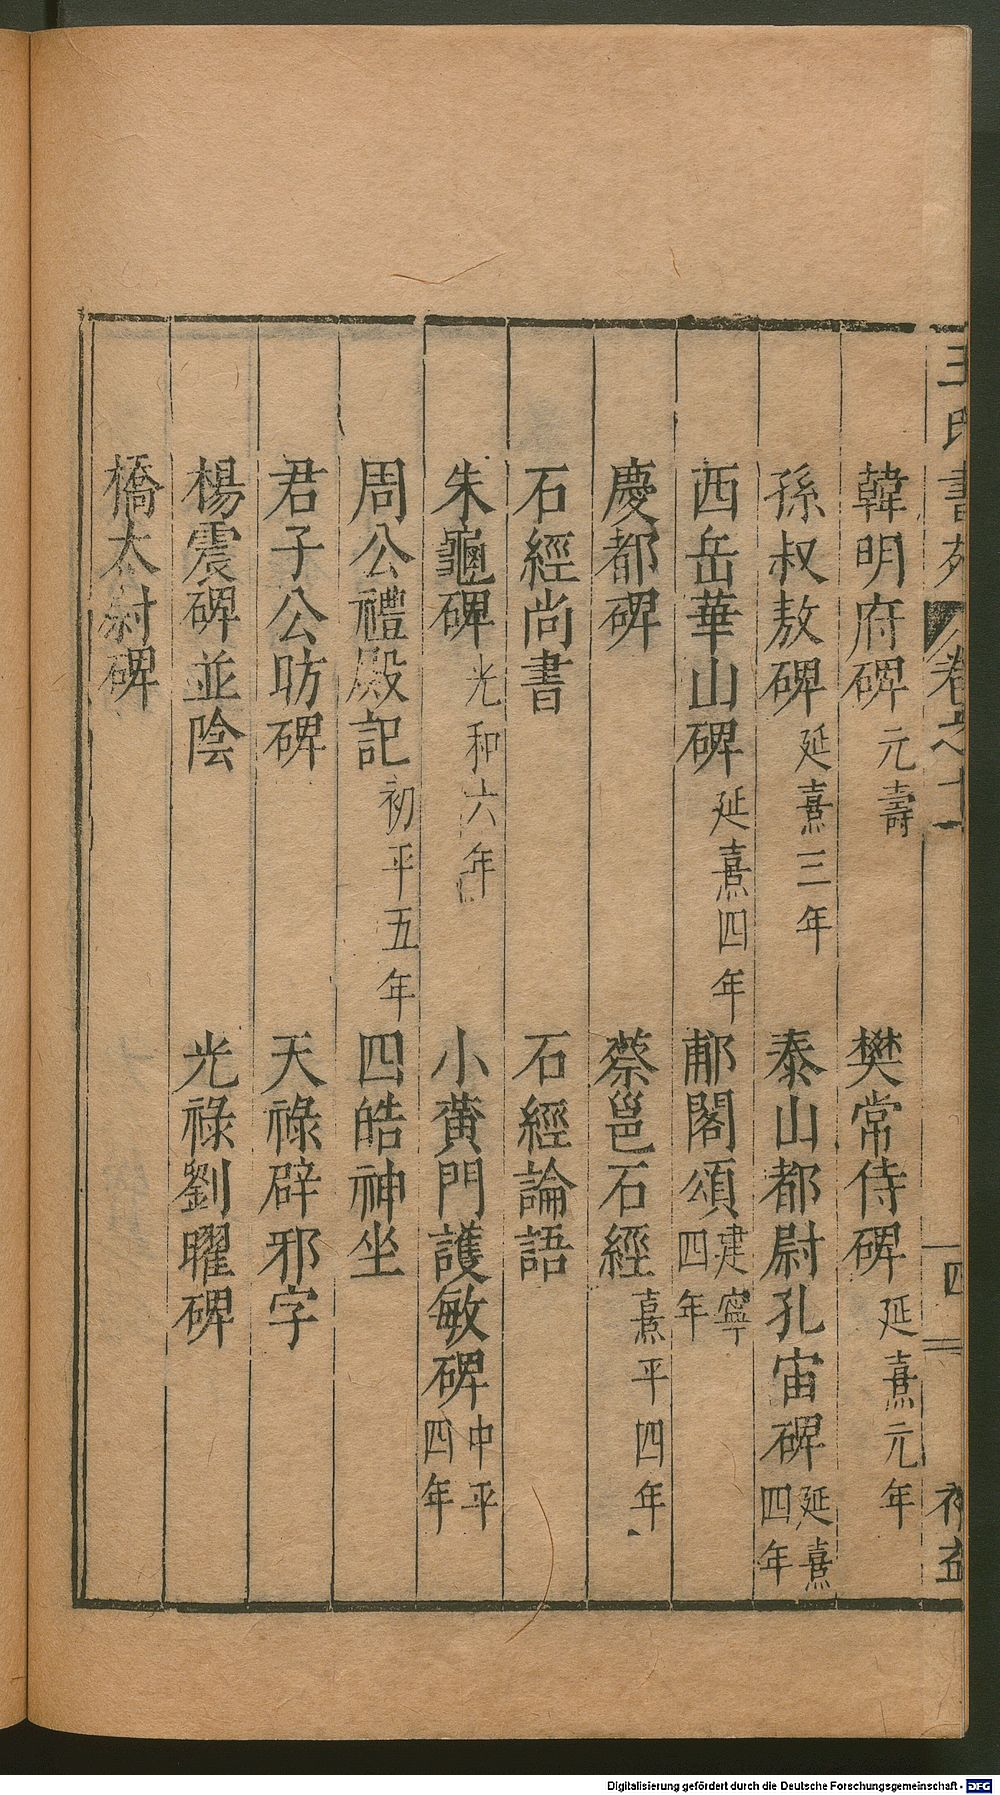 王氏書苑 卷之十一 四 衤五
韓明府碑 元壽 樊常侍碑 延熹元年
孫叔敖碑 延熹三年 泰山都尉孔宙碑 延熹四年
西岳華山碑 延熹四年 郙閣頌 建寧四年
慶都碑 蔡邕石經 熹平四年
石經尚書 石經論語
朱龜碑 光和六年 小黄門護敏碑 中平四年
周公禮殿記 初平五年 四皓神坐
君子公昉碑 天祿辟邪字
楊震碑並陰 光祿劉曜碑
橋太尉碑
Digitalisierung gefördert durch die Deutsche Forschungsgemeinschaft - DFG